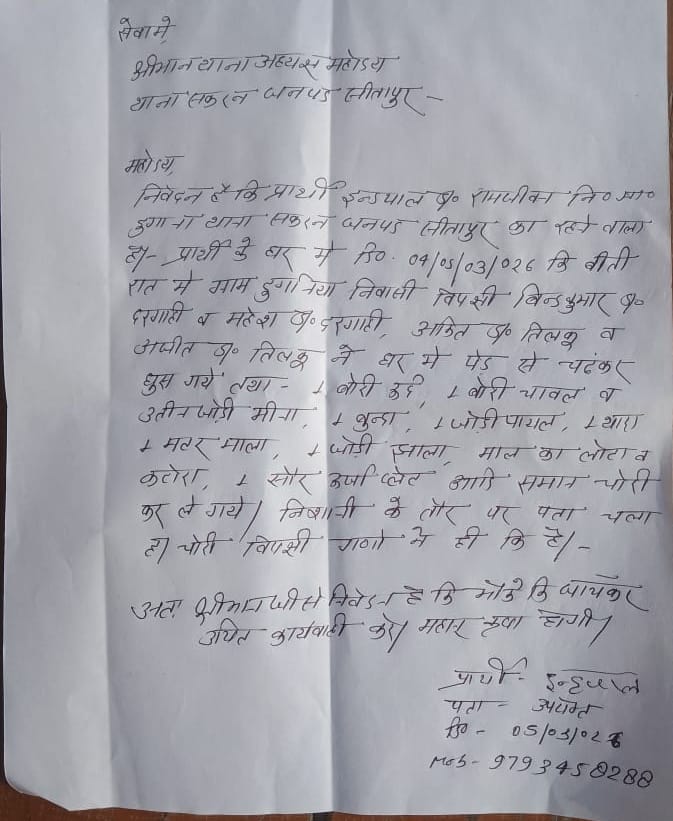 सेवामे,
श्रीमान थाना अध्यक्ष महोदय
थाना सकरन जनपद सीतापुर -
महोदय,
निवेदन है कि प्रार्थी इन्द्रपाल पु० रामजीवन नि० ग्रा०
दुगाना थाना सकरन जनपद सीतापुर का रहने वाला
है।- प्रार्थी के घर मे दि0. 04/05/03/026 कि बीती
रात मे ग्राम दुगनिया निवासी विपक्षी बिन्द्रकुमार पु०
दरगाही व महेश पु० दरगाही, अजित पु० तिलकू व
अजीत पु० तिलकू ने घर मे पेड़ से चढ़कर
घुस गये तथा - 1 बोरी उर्द, 1 बोरी चावल व
जोड़ी मीना, 1 कुन्डा, 1 जोडी पायल, 1
1 मटर माला, 1 जोड़ी झाला, माल का लोटा व
कटोरा, 1 सौर ऊर्जा प्लेट आदि समान चोरी
कर ले गये। निशानी के तौर पर पता चला
है। चोरी विपक्षी गणो ने ही कि है।-
अतः श्रीमान जी से निवेदन है कि मौके कि जाचकर
उचित कार्यवाही करे। महान कृपा होगी।
प्रार्थी - इन्द्रपाल
पता - उपरोक्त
दि0 - 05/03/026
Mob - 9793458288